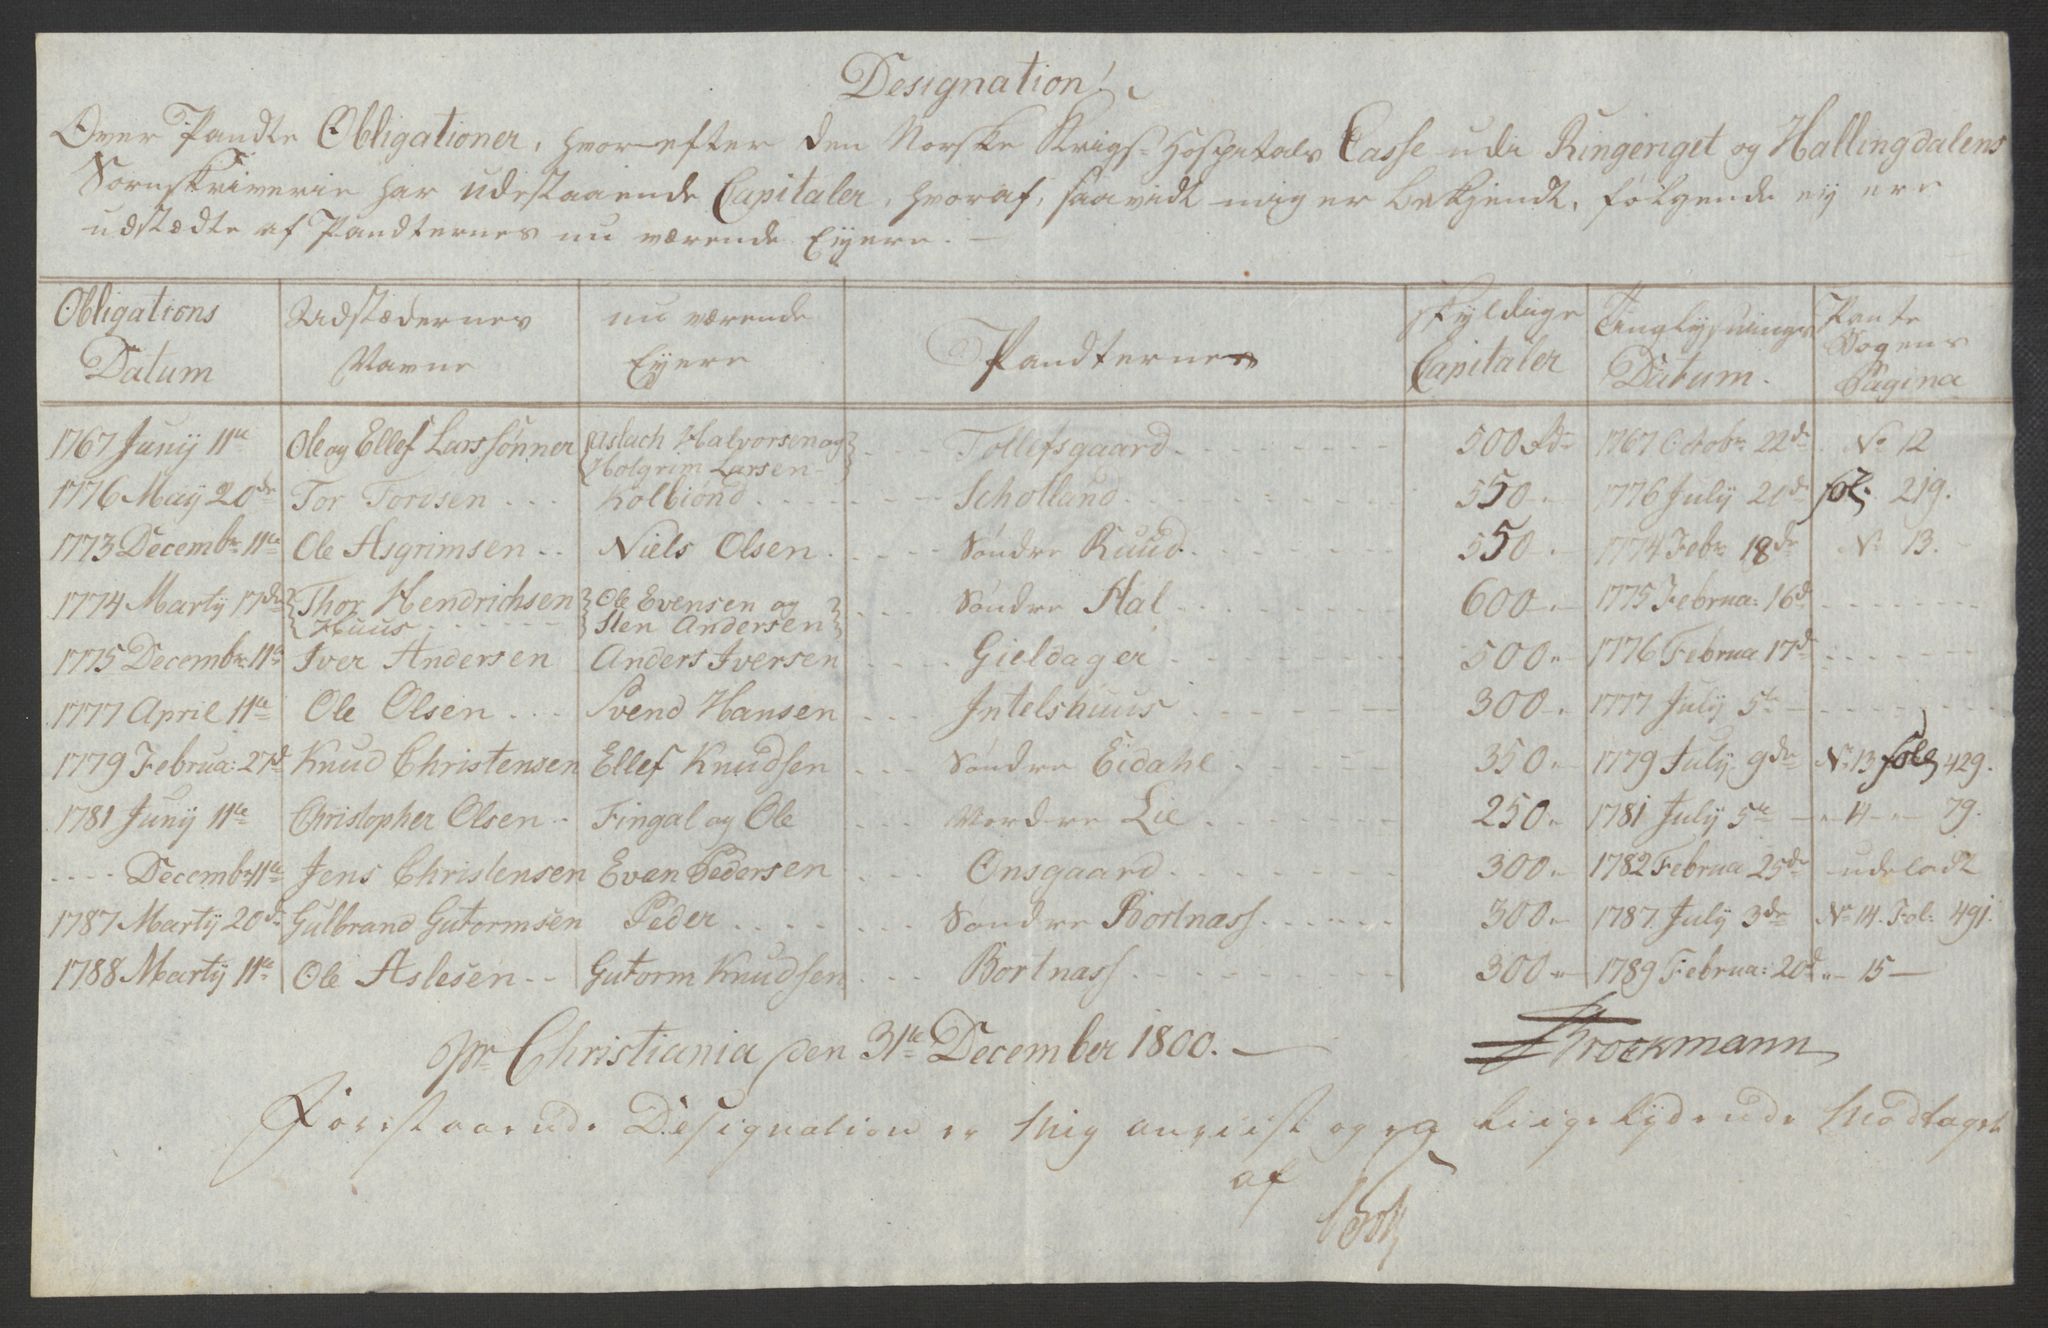 Designation!
Over Pandte Obligationer, hvorefter den Norske Krigs-Hospitals Casse udi Ringeriget og Hallingdalens
Sornskriverie har udestaaende Capitaler, hvoraf, saavidt mig er bekjendt, følgende ej ere
udstædte af Pandternes nu værende Ejere. —
Obligations Datum | Udstædernes Navne | nu værende Ejere | Pandternes | skyldige Capitaler | Tinglysnings Datum. | Pante Bogens Pagina
1767 Junij 11te | Ole og Ellef Larssønner | Aslach Halvorsen og Holgrim Larsen | Tollefsgaard | 500 Rdr | 1767 Octobr 22de | No 12
1776 Maij 20de | Tor Torssen | Kolbiønd | Schotland | 550 | 1776 July 21de | fol. 219.
1773 Decembr 11te | Ole Asgrimsen | Niels Olsen | Søndre Ruud | 550 | 1774 Febr 18de | No 13.
1774 Martij 17de | Thor Hendrichsen Huus | Ole Evensen og Sten Andersen | Søndre Hal | 600 | 1775 Februa: 16de
1775 Decembr 11te | Iver Andersen | Anders Iversen | Gieldager | 500 | 1776 Februa 17de
1777 April 11te | Ole Olsen | Svend Hansen | Intelshuus | 300 | 1777 July 5te
1779 Februa: 27de | Knud Christensen | Ellef Knudsen | Søndre Eidahl | 350 | 1779 July 9de | No 13 fol 429.
1781 Junij 11te | Christopher Olsen | Fingal og Ole | Nordre Lie | 250 | 1781 July 5te | 14 79.
---- Decembr 11te | Jens Christensen | Even Pedersen | Onsgaard | 300 | 1782 Februa 25de | udeladt
1787 Martij 20de | Gulbrand Gutormsen | Peder | Søndre Bortnass | 300 | 1787 July 3de | No 14. Fol: 491.
1788 Martij 11te | Ole Aslesen | Gutorm Knudsen | Bortnass | 300 | 1789 Februa: 20de | 15
pr Christiania den 31te December 1800. —
Brockmann
Forestaaende Designation er mig anviist og eg liigelydende modtaget
af